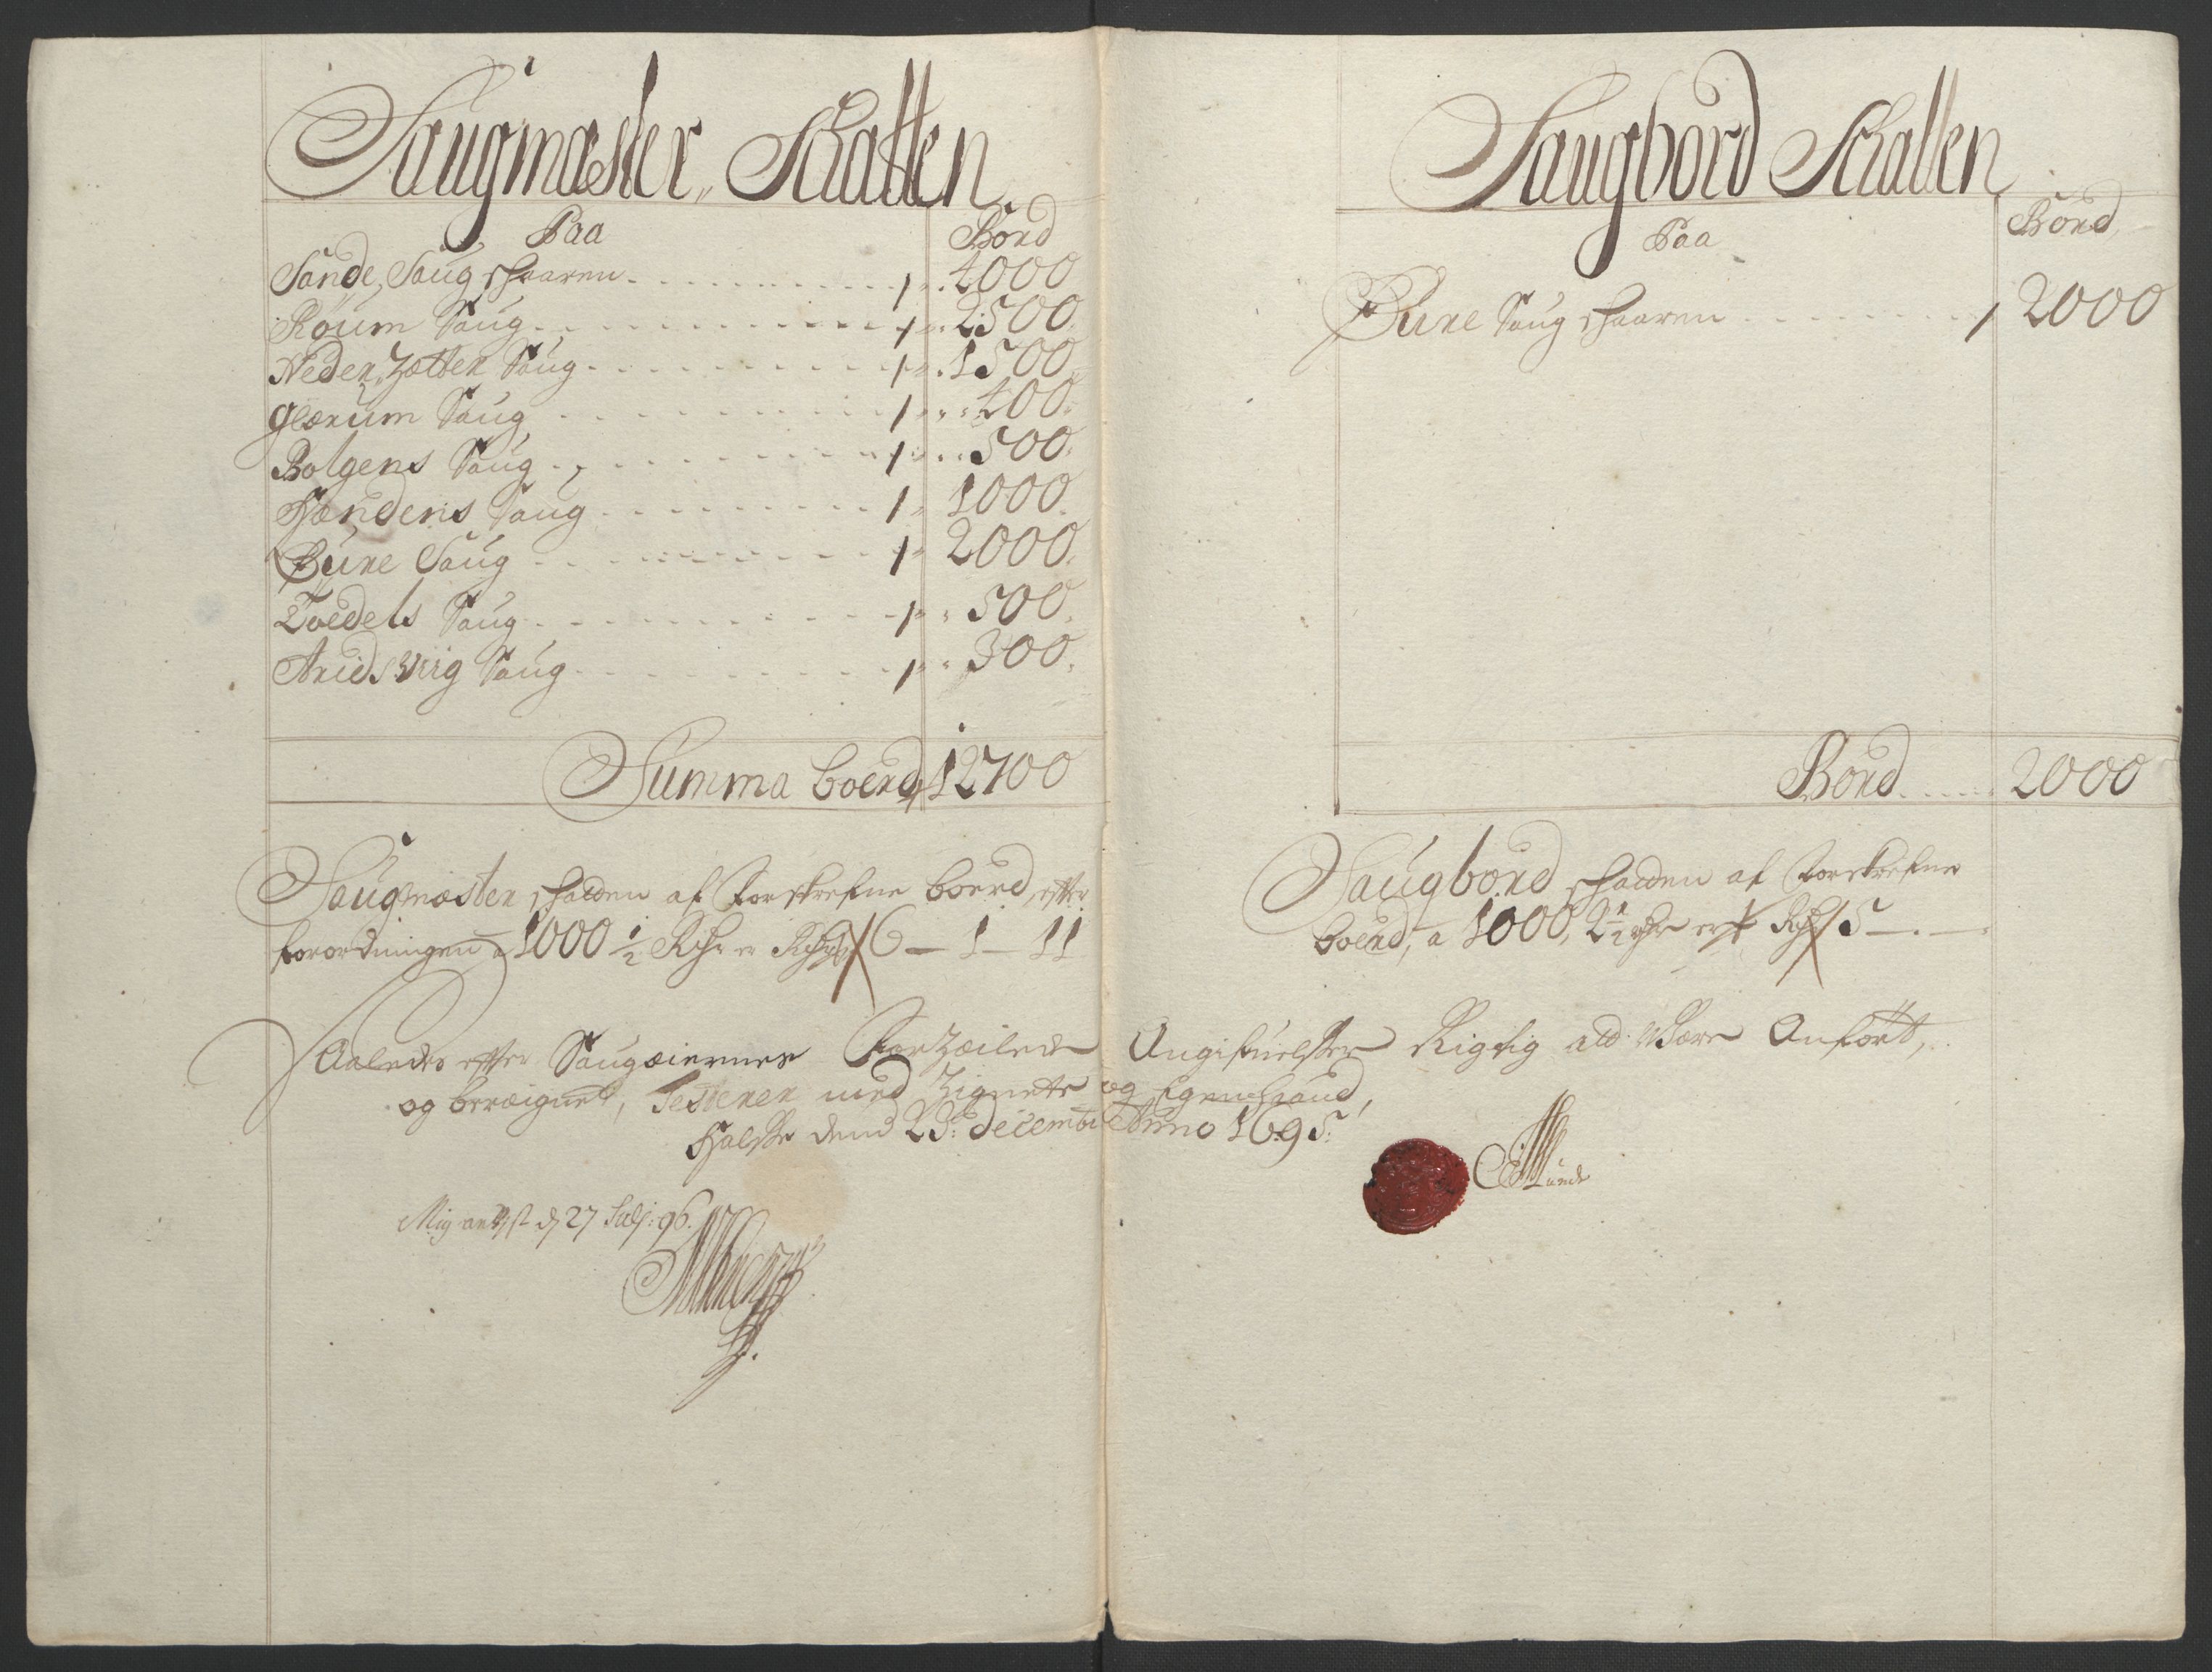 Saugmæster, Skatten
Paa Bord
Sande, Saug skaaren 1 4000
Roum Saug 1 2500
Neder, Zetter Saug 1 1500
Glærum Saug 1 400
Bolgens Saug 1 500
Handens Saug 1 1000
Bure Saug 1 2000
Toedels Saug 1 500
Aridsvig Saug 1 300
Summa boerd 12700
Saugmæster schatten af Forskrefne boerd, effter
forordningen a 1000 1/2 Rdr er Rdr 6 - 1 - 11
Saugbord Skatten
Paa Bord
Bure Saug skaaren 1 2000
Bord 2000
Saugbord schatten af Forskrefne
boerd, a 1000, 2 1/2 rdr er Rdr 5 - . -
Saaledes effter Saugæiernes Angifuelse Rigtig ald Være Anført,
og beræignet, Testerer med Zignete og Egen haand,
Halse dend 23: Decembr Anno 1695:
Munch
Mig anvist d 27 Julj: 96.